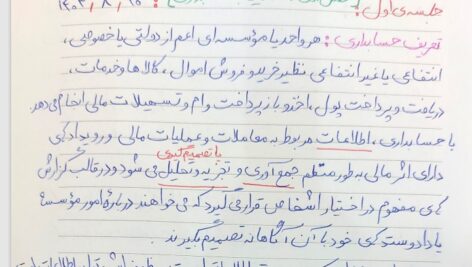 جلسه‌ی اول: ۱۴۰۲/۸/۱۵
تعریف حسابداری: هر واحد یا مؤسسه‌ای اعم از دولتی یا خصوصی،
انتفاعی یا غیر انتفاعی نظیر خرید و فروش اموال، کالاها و خدمات،
دریافت و پرداخت پول، اخذ و باز پرداخت وام و تسهیلات مالی انجام می‌دهد
با حسابداری، اطلاعات مربوط به معاملات و عملیات مالی و رویدادهای
یا تصمیم‌گیری
دارای اثر مالی به طور منظم جمع آوری و تجزیه و تحلیل می‌شود و در قالب گزارش
های مفهوم در اختیار اشخاصی قرار می‌گیرد که می‌خواهند درباره امور مؤسسه
یا داد و ستدهای خود با آن آگاهانه تصمیم بگیرند.